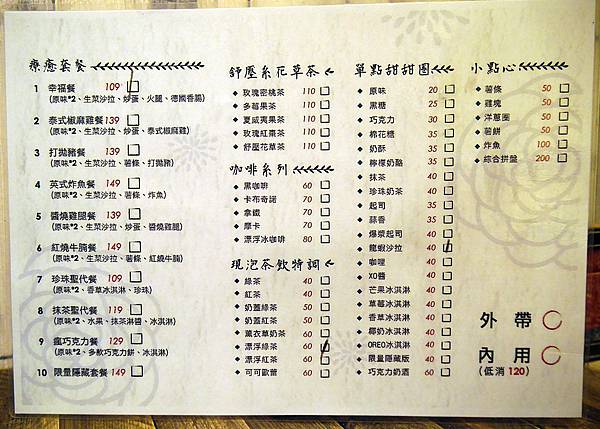 療癒套餐
1 幸福餐 109
(原味*2、生菜沙拉、炒蛋、火腿、德國香腸)
2 泰式椒麻雞餐 139
(原味*2、生菜沙拉、炒蛋、泰式椒麻雞)
3 打拋豬餐 139
(原味*2、生菜沙拉、薯條、打拋豬)
4 英式炸魚餐 149
(原味*2、生菜沙拉、薯條、炸魚)
5 醬燒雞腿餐 139
(原味*2、生菜沙拉、炒蛋、醬燒雞腿)
6 紅燒牛腩餐 149
(原味*2、生菜沙拉、薯條、紅燒牛腩)
7 珍珠聖代餐 109
(原味*2、香草冰淇淋、珍珠)
8 抹茶聖代餐 119
(原味*2、水果、抹茶淋醬、冰淇淋)
9 瘋巧克力餐 129
(原味*2、多款巧克力餅、冰淇淋)
10 限量隱藏套餐 149
舒壓系花草茶
玫瑰蜜桃茶 110
多莓果茶 110
夏威夷果茶 110
玫瑰紅棗茶 110
舒壓花草茶 110
咖啡系列
黑咖啡 60
卡布奇諾 70
拿鐵 70
摩卡 70
漂浮冰咖啡 80
現泡茶飲特調
綠茶 40
紅茶 40
奶蓋綠茶 50
奶蓋紅茶 50
薰衣草奶茶 60
漂浮綠茶 60
漂浮紅茶 60
可可歐蕾 60
單點甜甜圈
原味 20
黑糖 25
巧克力 30
棉花糖 35
奶酥 35
檸檬奶酪 35
抹茶 40
珍珠奶茶 40
起司 35
蒜香 35
爆漿起司 40
龍蝦沙拉 40
咖哩 40
XO醬 40
芒果冰淇淋 40
草莓冰淇淋 40
香草冰淇淋 40
椰奶冰淇淋 40
OREO冰淇淋 40
限量隱藏版 40
巧克力奶酒 60
小點心
薯條 50
雞塊 50
洋蔥圈 50
薯餅 50
炸魚 100
綜合拼盤 200
外帶
內用
(低消120)